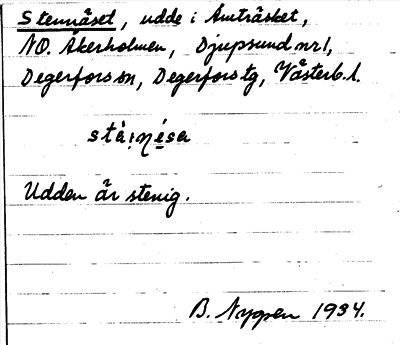 Stennäset, udde i Amträsket,
NO. Åkerholmen, Djupsund nr 1,
Degerfors sn, Degerfors tg, Västerb. l.
Udden är stenig.
B. Nygren 1934.